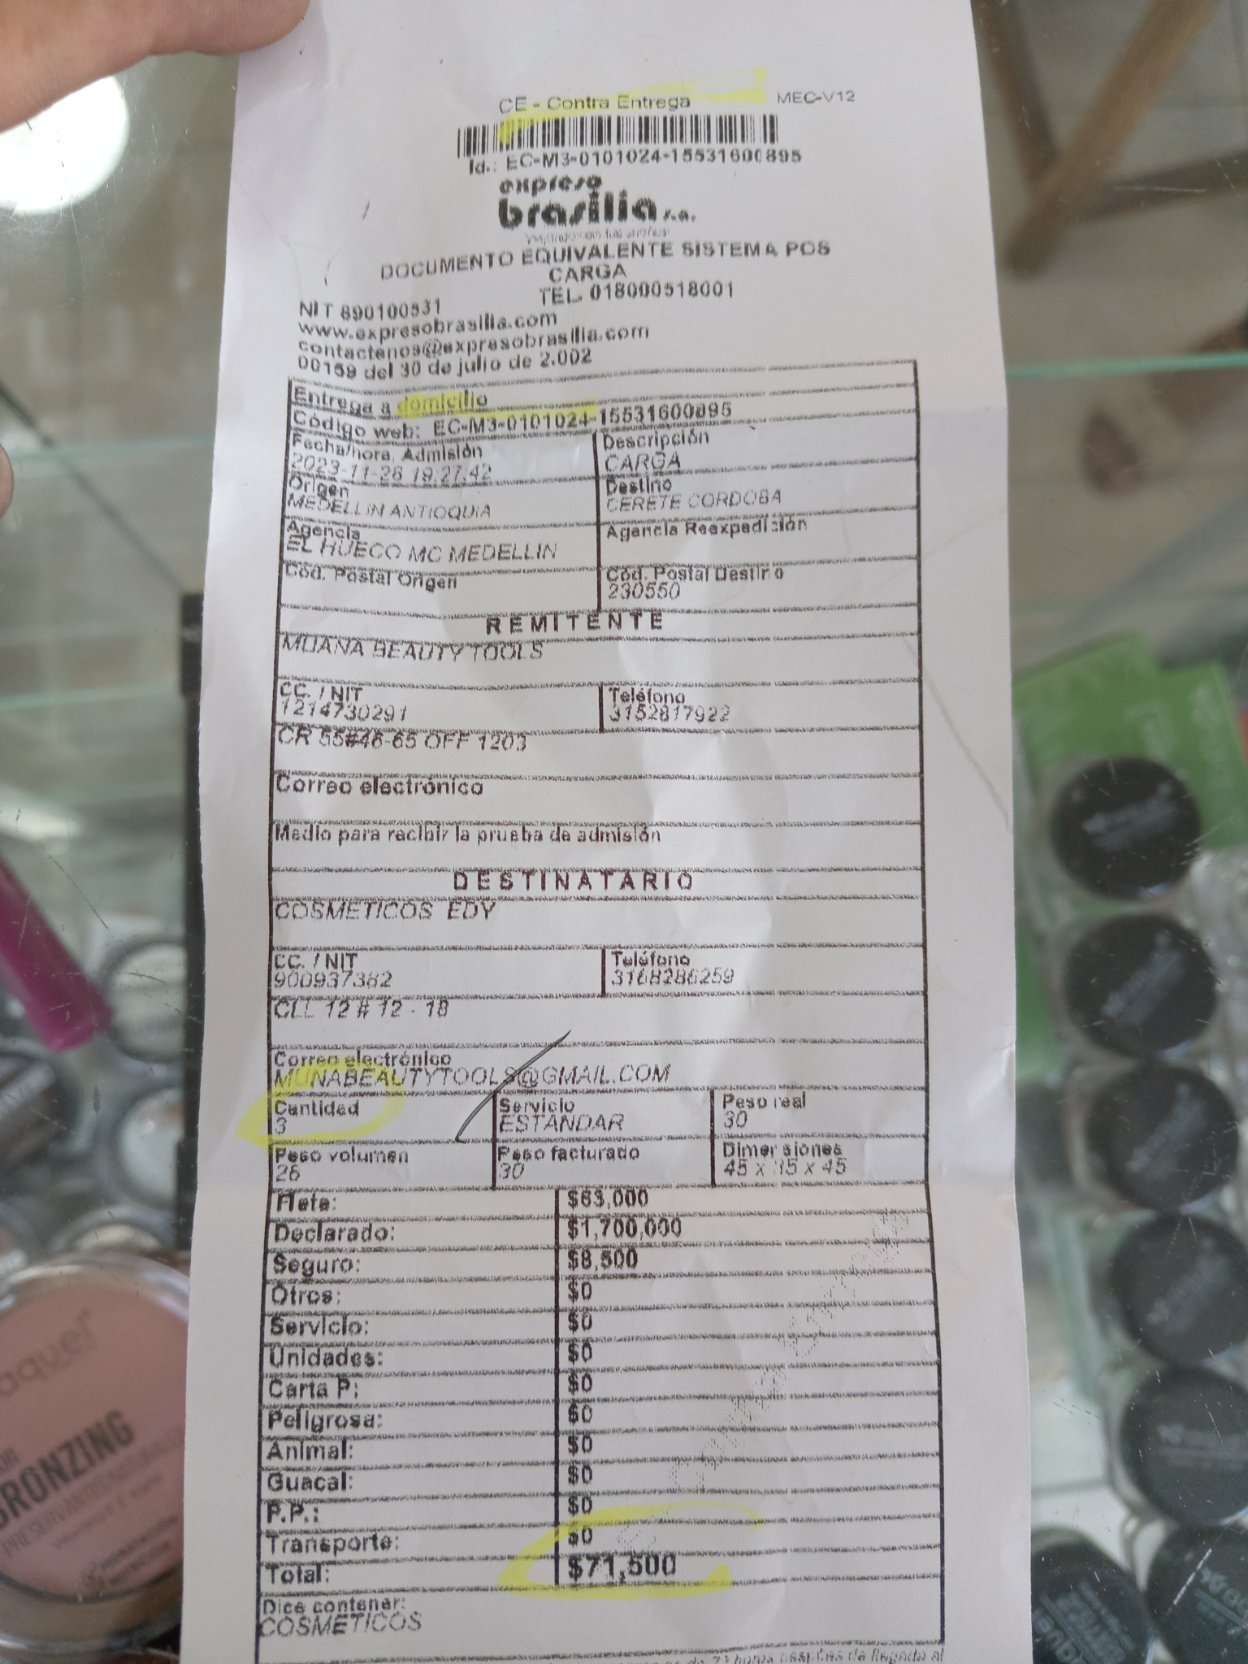 CE - Contra Entrega
MEC-V12
Id.: EC-M3-0101024-15531600895
expreso
brasilia s.a.
DOCUMENTO EQUIVALENTE SISTEMA POS
CARGA
NIT 890100531
TEL. 018000518001
www.expresobrasilia.com
contactenos@expresobrasilia.com
00159 del 30 de julio de 2.002
Entrega a domicilio
Código web: EC-M3-0101024-15531600895
Fecha/hora Admisión
2023-11-28 19:27:42
Descripción
CARGA
Origen
MEDELLIN ANTIOQUIA
Destino
CERETE CORDOBA
Agencia
EL HUECO MC MEDELLIN
Agencia Reexpedición
Cód. Postal Origen
Cód. Postal Destino
230550
REMITENTE
MUANA BEAUTY TOOLS
CC. / NIT
1214730291
Teléfono
3152817922
CR 55#46-65 OFF 1203
Correo electrónico
Medio para recibir la prueba de admisión
DESTINATARIO
COSMETICOS EDY
CC. / NIT
900937382
Teléfono
3168286259
CLL 12 # 12 - 18
Correo electrónico
MUNABEAUTYTOOLS@GMAIL.COM
Cantidad
3
Servicio
ESTANDAR
Peso real
30
Peso volumen
26
Peso facturado
30
Dimensiones
45 x 35 x 45
Flete: $63,000
Declarado: $1,700,000
Seguro: $8,500
Otros: $0
Servicio: $0
Unidades: $0
Carta P: $0
Peligrosa: $0
Animal: $0
Guacal: $0
P.P.: $0
Transporte: $0
Total: $71,500
Dice contener:
COSMETICOS
BRONZING